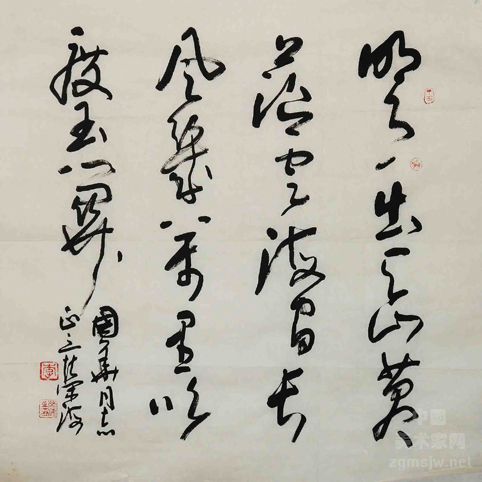 明月出天山蒼
茫雲海間長
風幾萬里吹
度玉門關
國華同志
正之荣海
中国
美术家网
zgmsjw.net